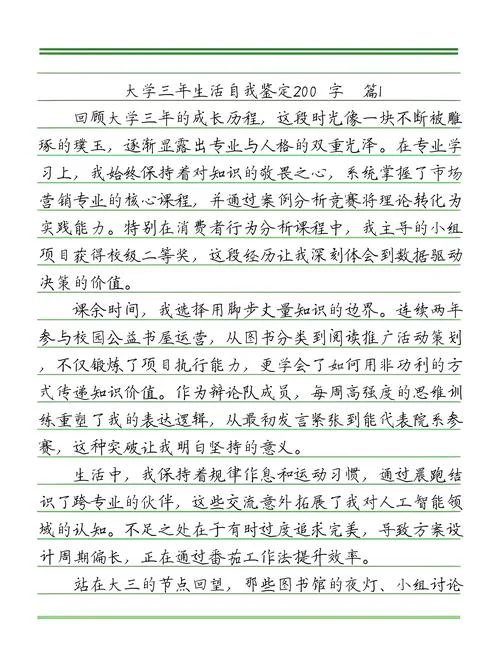 大学三年生活自我鉴定200 字 篇1
回顾大学三年的成长历程，这段时光像一块不断被雕
琢的璞玉，逐渐显露出专业与人格的双重光泽。在专业学
习上，我始终保持着对知识的敬畏之心，系统掌握了市场
营销专业的核心课程，并通过案例分析竞赛将理论转化为
实践能力。特别在消费者行为分析课程中，我主导的小组
项目获得校级二等奖，这段经历让我深刻体会到数据驱动
决策的价值。
课余时间，我选择用脚步丈量知识的边界。连续两年
参与校园公益书屋运营，从图书分类到阅读推广活动策划
，不仅锻炼了项目执行能力，更学会了如何用非功利的方
式传递知识价值。作为辩论队成员，每周高强度的思维训
练重塑了我的表达逻辑，从最初发言紧张到能代表院系参
赛，这种突破让我明白坚持的意义。
生活中，我保持着规律作息和运动习惯，通过晨跑结
识了跨专业的伙伴，这些交流意外拓展了我对人工智能领
域的认知。不足之处在于有时过度追求完美，导致方案设
计周期偏长，正在通过番茄工作法提升效率。
站在大三的节点回望，那些图书馆的夜灯、小组讨论